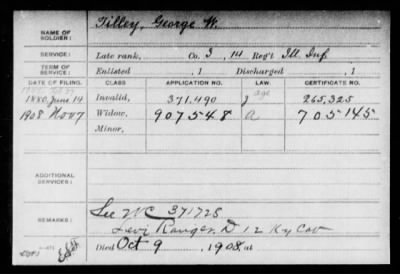 NAME OF SOLDIER: Tilley, George W.
SERVICE: Late rank, Co. I, 14 Reg't Ill. Inf.
TERM OF SERVICE: Enlisted , 1 Discharged , 1
DATE OF FILING. CLASS APPLICATION NO. LAW CERTIFICATE NO.
1880, June 14 Invalid, 371,490 J age 265,325
1908 Nov 7 Widow, 907548 a 705145
Minor,
ADDITIONAL SERVICES:
REMARKS: See WC 371725
Levi Ranger, D 12 Ky Cav
Died Oct 9, 1908, at